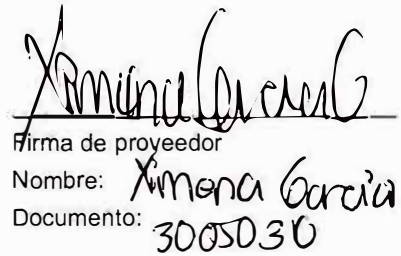 Ximena Garcia G
Firma de proveedor
Nombre: Ximena Garcia
Documento: 3005030